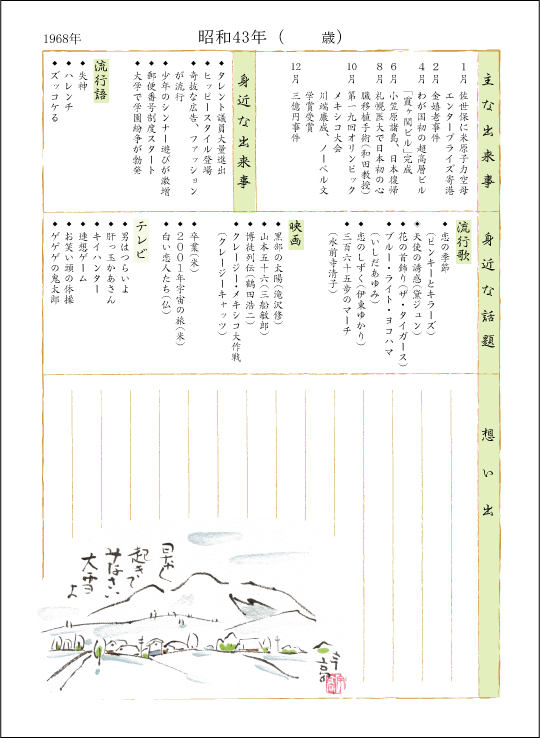 1968年
昭和43年（　　歳）
主な出来事
1月 佐世保に米原子力空母
エンタープライズ寄港
2月 金嬉老事件
4月 わが国初の超高層ビル
「霞ヶ関ビル」完成
6月 小笠原諸島、日本復帰
8月 札幌医大で日本初の心
臓移植手術（和田教授）
10月 第一九回オリンピック
メキシコ大会
川端康成、ノーベル文
学賞受賞
12月 三億円事件
身近な出来事
◆タレント議員大量進出
◆ヒッピースタイル登場
◆奇抜な広告、ファッション
が流行
◆少年のシンナー遊びが激増
◆郵便番号制度スタート
◆大学で学園紛争が勃発
流行語
◆失神
◆ハレンチ
◆ズッコケる
身近な話題
流行歌
◆恋の季節
（ピンキーとキラーズ）
◆天使の誘惑（黛ジュン）
◆花の首飾り（ザ・タイガース）
◆ブルー・ライト・ヨコハマ
（いしだあゆみ）
◆恋のしずく（伊東ゆかり）
◆三百六十五歩のマーチ
（水前寺清子）
映画
◆黒部の太陽（滝沢修）
◆山本五十六（三船敏郎）
◆博徒列伝（鶴田浩二）
◆クレージー・メキシコ大作戦
（クレージーキャッツ）
◆卒業（米）
◆2001年宇宙の旅（米）
◆白い恋人たち（仏）
テレビ
◆男はつらいよ
◆肝っ玉かあさん
◆キイハンター
◆連想ゲーム
◆お笑い頭の体操
◆ゲゲゲの鬼太郎
想い出
早く
起きて
みなさい
大雪
よ